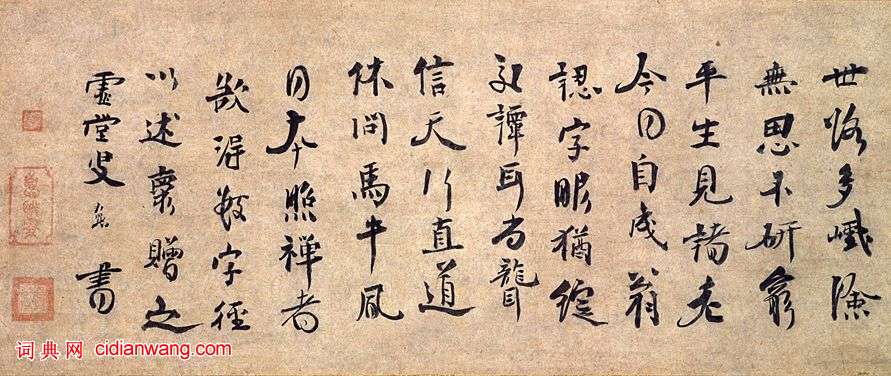 世路多巇險
無思不研窮
平生見諸老
今日自成翁
認字眼猶綻
交譚耳尚聾
信天行直道
休問馬牛風
日本照禪者
欲得數字徑
以述褱贈之
虛堂叟書
词典网 cidianwang.com